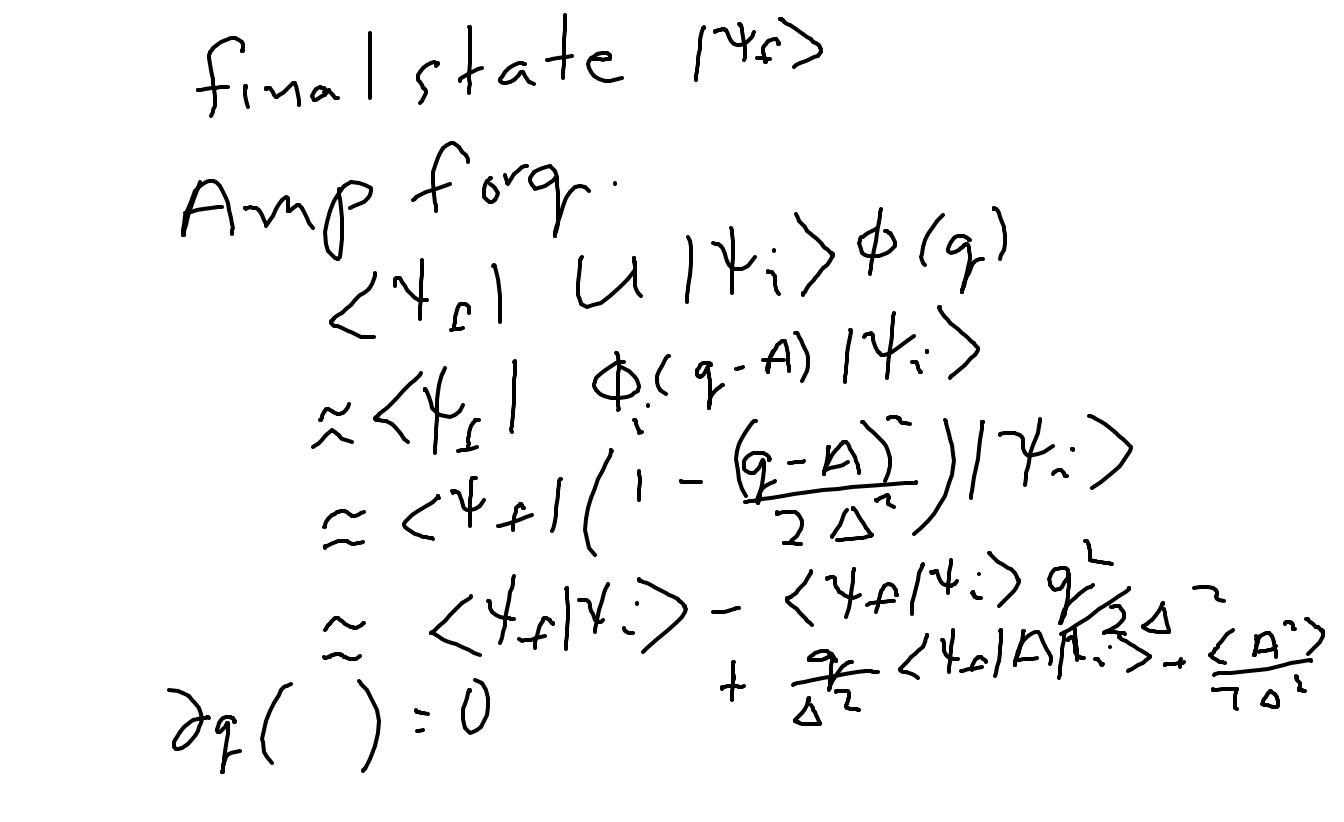 final state |ψf>
Amp for q.
<ψf| U |ψi> ϕ(q)
≈ <ψf| ϕi(q-A) |ψi>
≈ <ψf| (1 - (q-A)²/2Δ²) |ψi>
≈ <ψf|ψi> - <ψf|ψi> q²/2Δ²
+ q/Δ² <ψf|A|ψi> + <A²>/2Δ²
∂q ( ) = 0